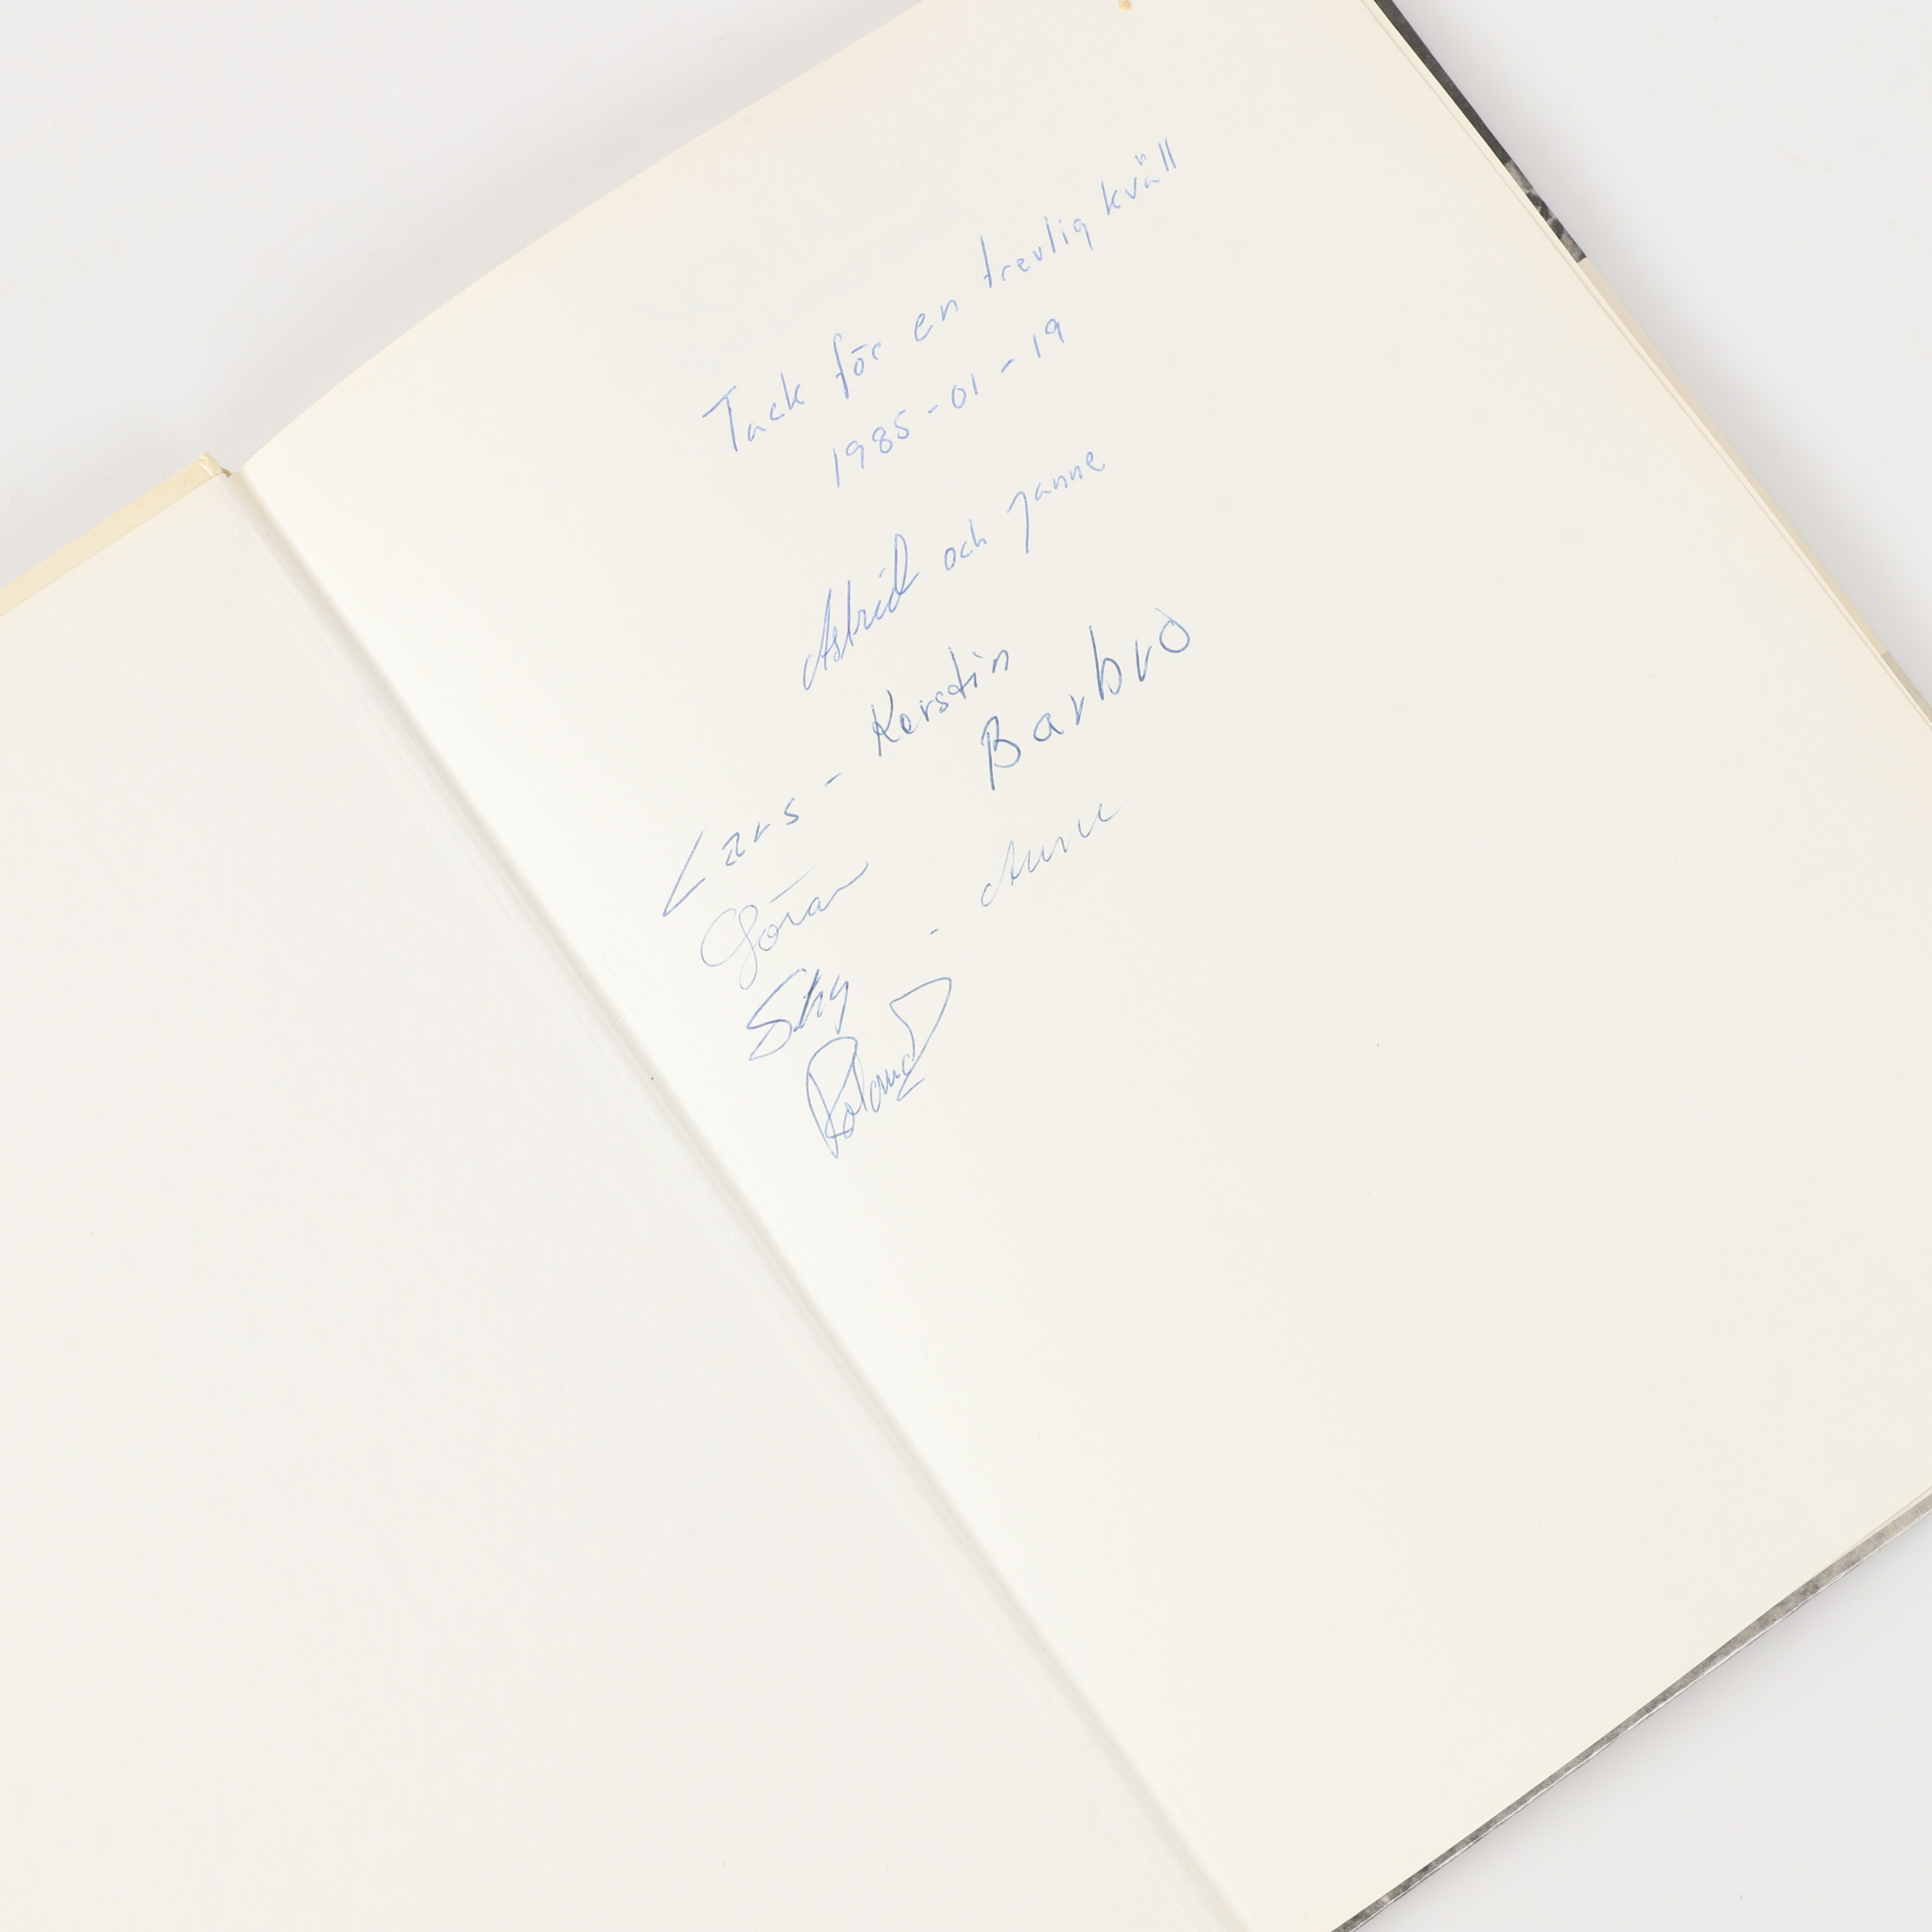 Tack för en trevlig kväll
1985-01-19
Astrid och Janne
Lars - Kerstin
Barbro
Göran
Stig -
Roland